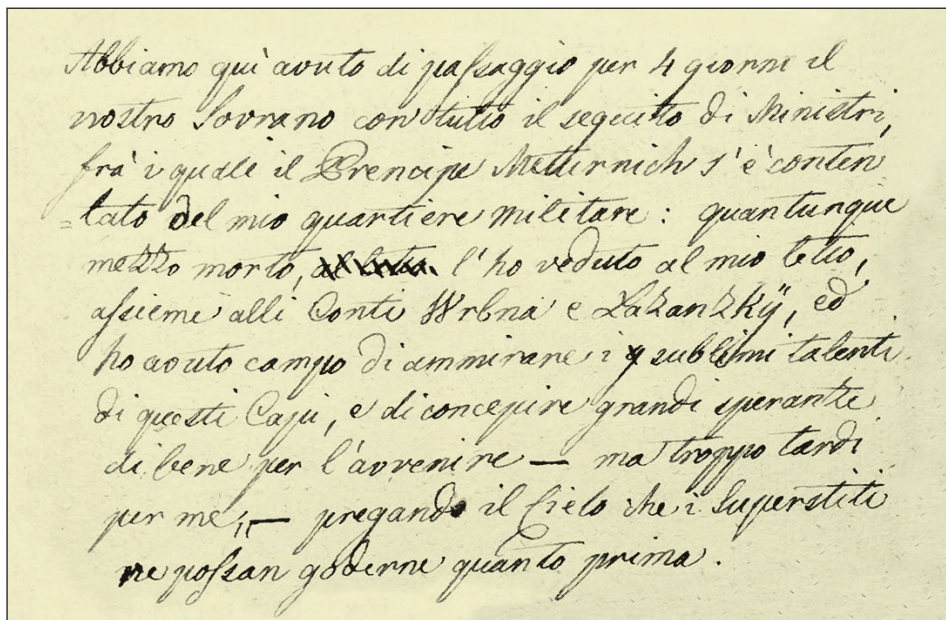 Abbiamo quì avuto di passaggio per 4 giorni il
nostro Sovrano con tutto il seguito di Ministri,
frà i quali il Prencipe Metternich s'è conten
=tato del mio quartiere militare: quantunque
mezzo morto, l'ho veduto al mio letto,
assieme alli Conti Wrbna e Lazanzkÿ, ed
ho avuto campo di ammirare i sublimi talenti
di questi Capi, e di concepire grandi speranze
di bene per l'avvenire — ma troppo tardi
per me, — pregando il Cielo che i Superstiti
ne possan goderne quanto prima.